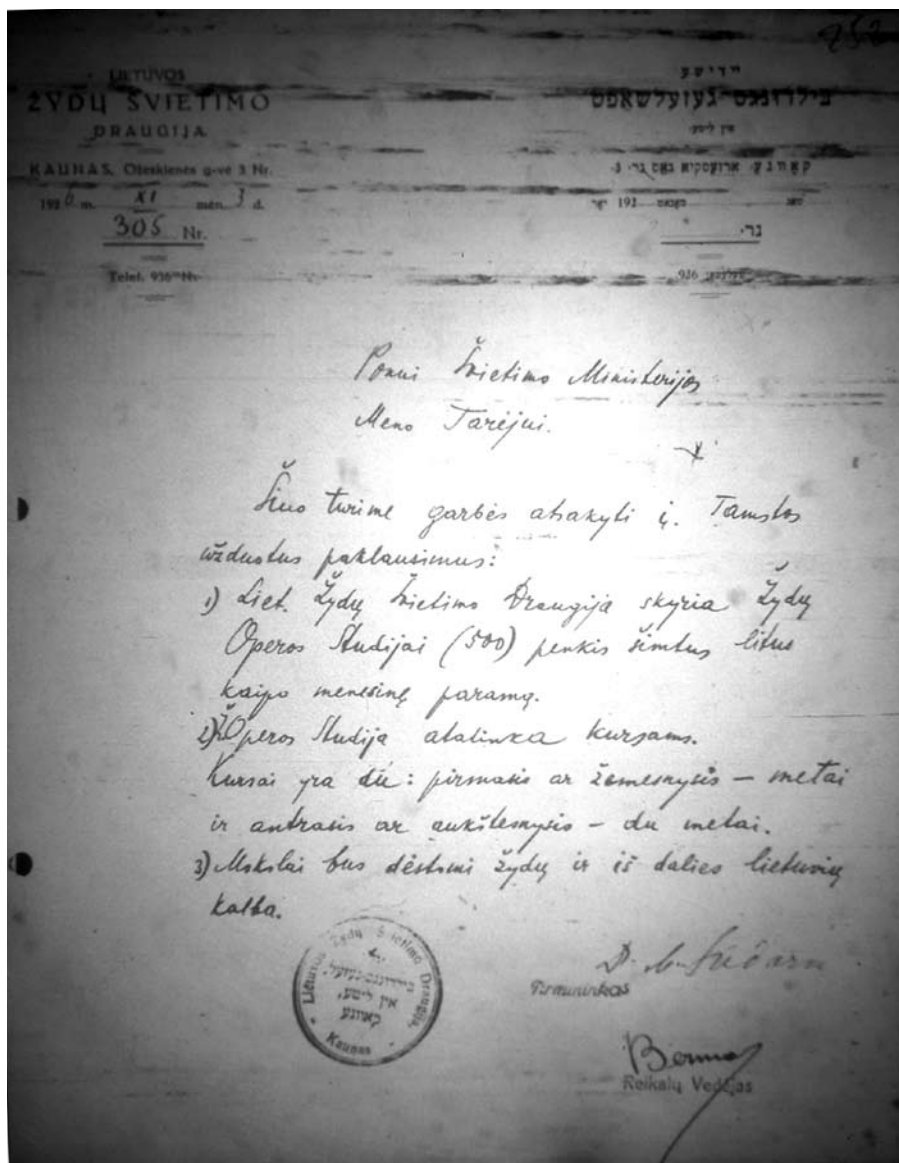 252
LIETUVOS
ŽYDŲ ŠVIETIMO
DRAUGIJA
KAUNAS, Ožeskienės g-vė 3 Nr.
1926 m. XI mėn. 3 d.
305 Nr.
Telef. 936 Nr.
יידישע
בילדונגס-געזעלשאפט
אין ליטע
קאוונע,
192
נר.
936
Ponui Švietimo Ministerijos
Meno Tarėjui.
Šiuo turime garbės atsakyti į. Tamstos
užduotus paklausimus:
1) Liet. Žydų Švietimo Draugija skyria Žydų
Operos Studijai (500) penkis šimtus litus
kaipo menesinę paramą.
2) Ž Operos Studija atatinka kursams.
Kursai yra du: pirmasis ar žemesnysis – metai
ir antrasis ar aukštesnysis – du metai.
3) Mokslai bus dėstomi žydų ir iš dalies lietuvių
kalba.
Lietuvos Žydų Švietimo Draugija,
אין ליטע,
קאוונע
Kaunas
Pirmininkas
Reikalų Vedėjas